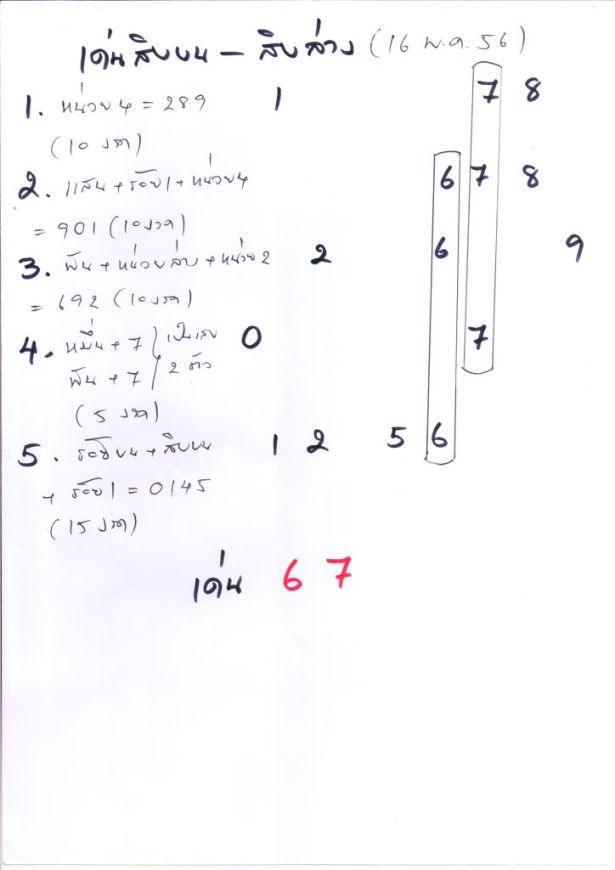 เด่นสิบบน - สิบล่าง (16 พ.ค. 56)
1. หน่วย 4 = 289 1 7 8
(10 งวด)
2. แสน + ร้อย1 + หน่วย4 6 7 8
= 901 (10งวด)
3. พัน + หน่วยล่าง + หน่วย2 2 6 9
= 692 (10งวด)
4. หมื่น + 7 เป็นเลข 0 7
พัน + 7 2 ตัว
(5 งวด)
5. ร้อยบน + สิบบน 1 2 5 6
+ ร้อย1 = 0145
(15 งวด)
เด่น 6 7